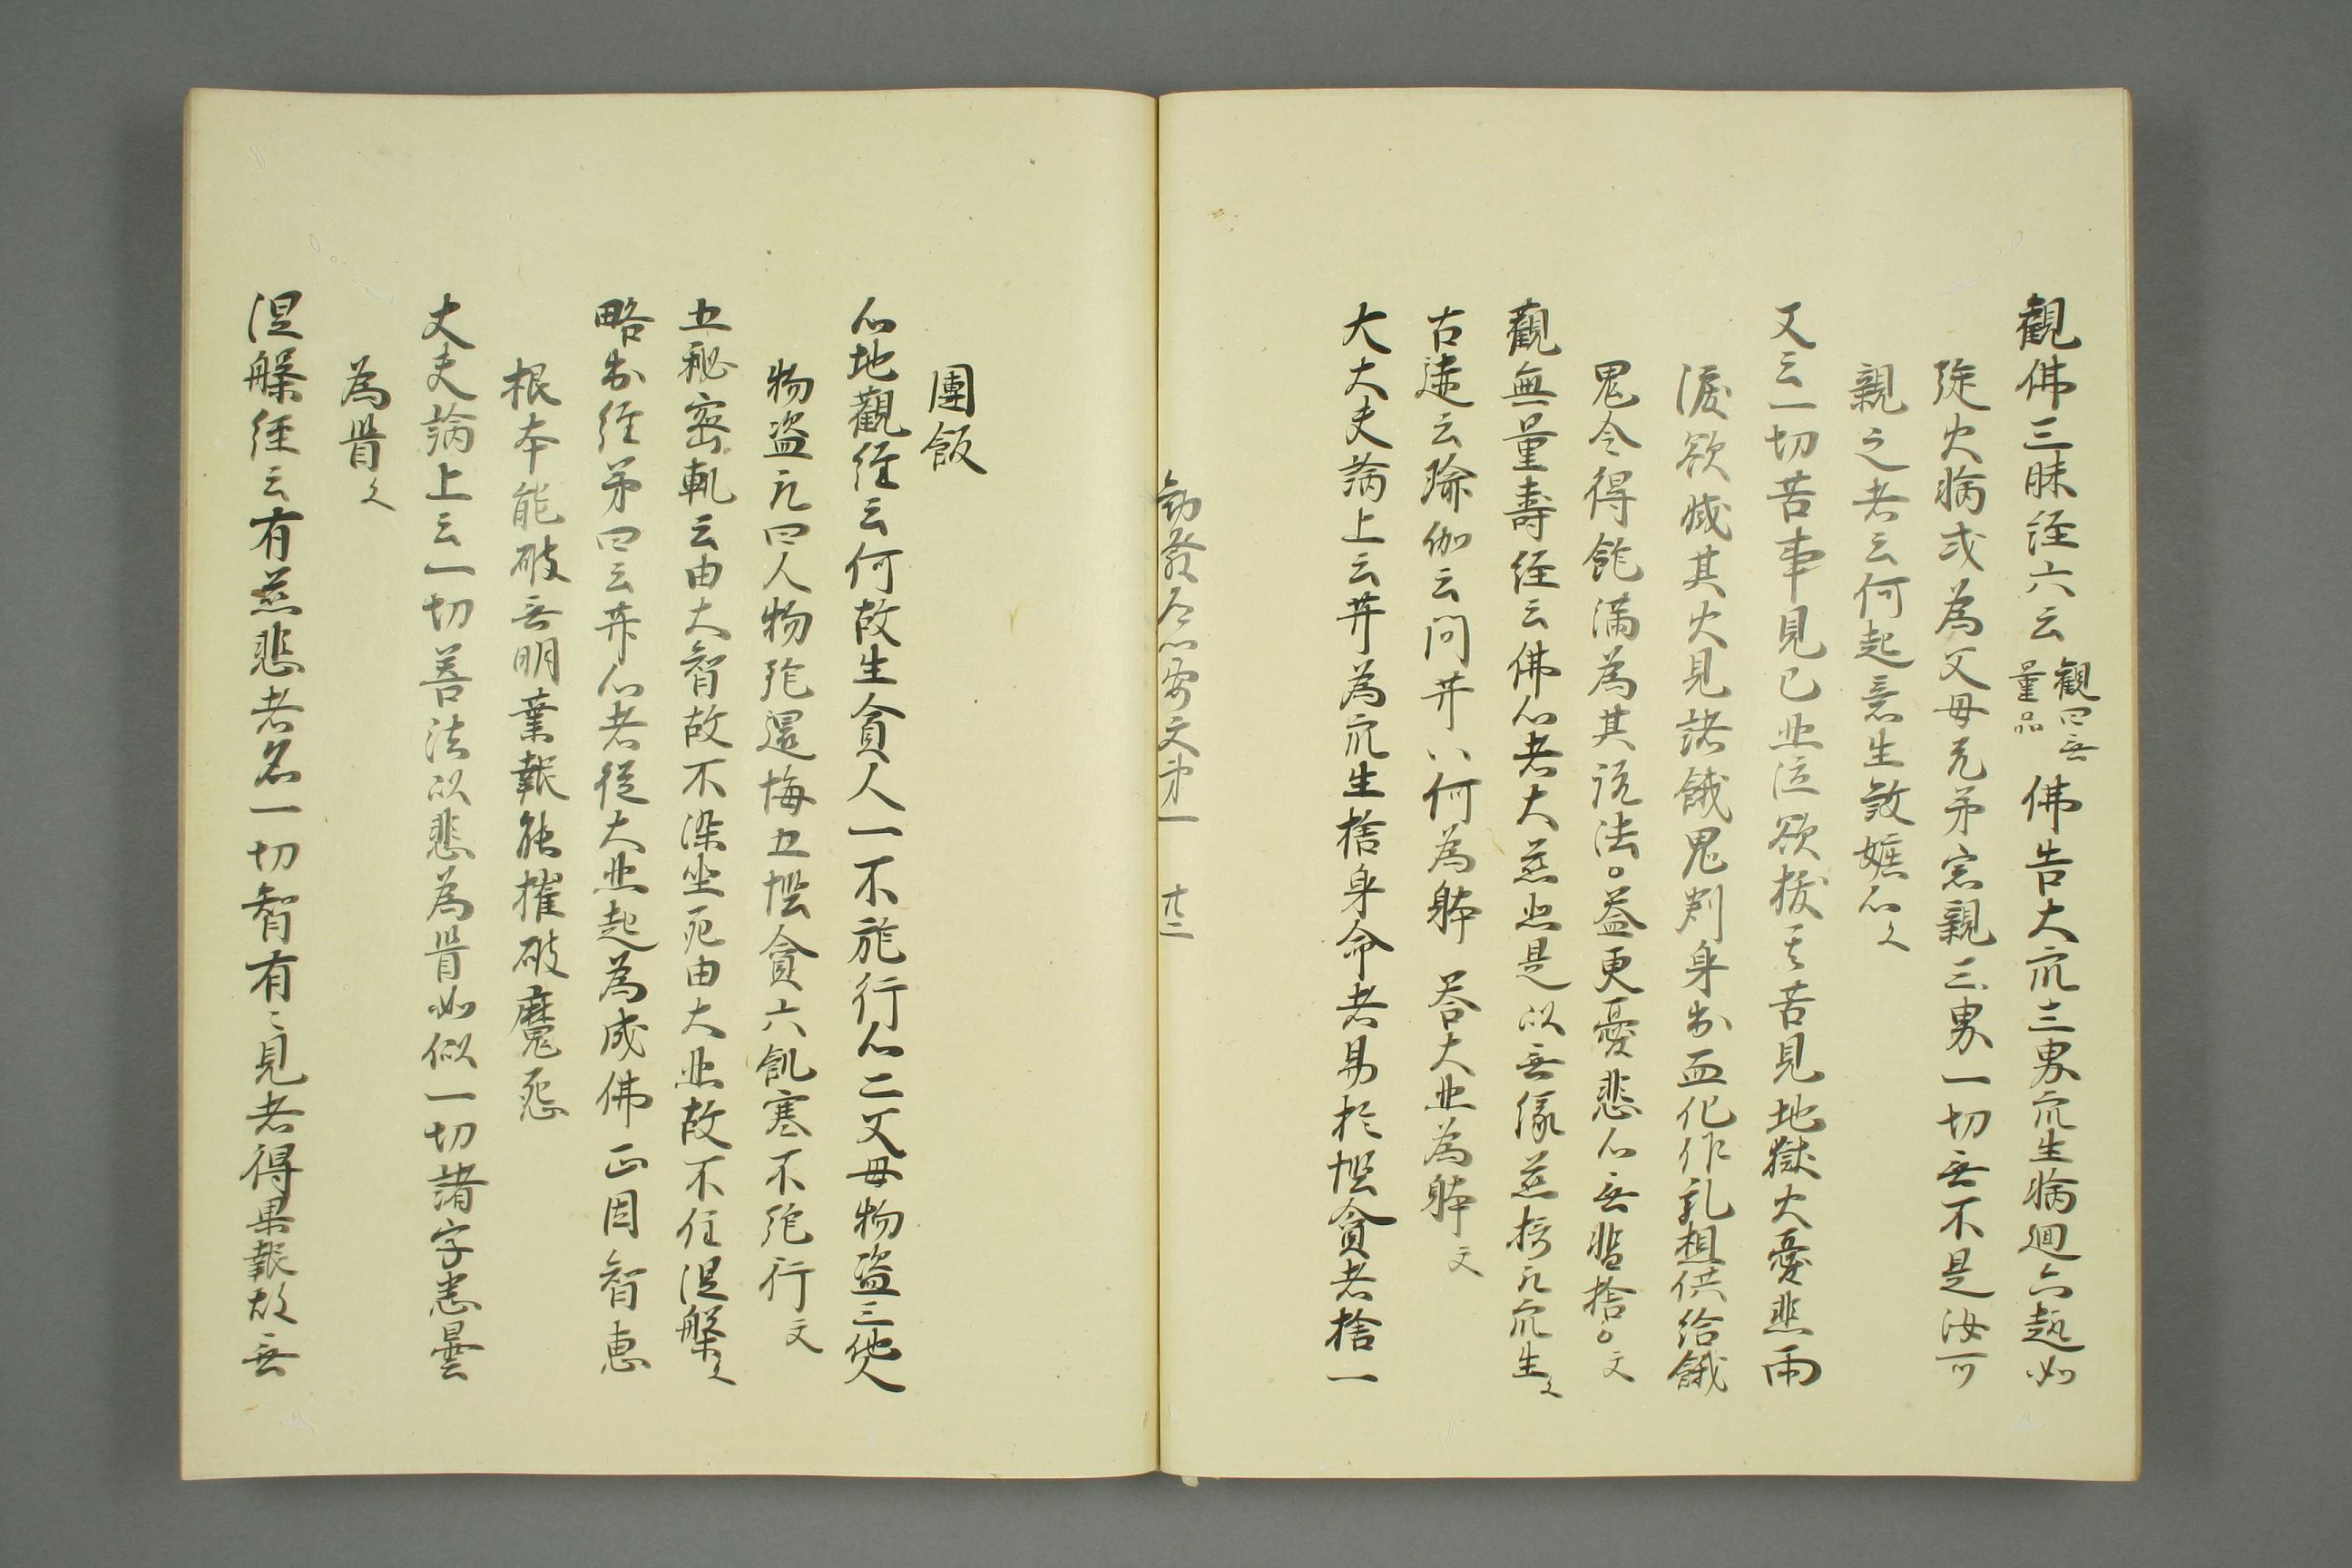 觀佛三昧経六云觀四無量品佛告大衆三界衆生輪廻六趣如
旋火輪或為父母兄弟宗親三界一切無不是汝所
親之者云何起意生煞嫉心文
又云一切苦事見已悲泣欲拔其苦見地獄火憂悲雨
涙欲滅其火見諸餓鬼判身出血化作乳想供给餓
鬼令得飽満為其説法。益更憂悲心無暫捨。文
觀無量壽経云佛心者大慈悲是以無縁慈摂凡衆生文
古迹云瑜伽云問菩薩以何為躰 荅大悲為躰文
大大夫論上云菩薩為衆生捨身命者易於慳貪者捨一
勧發 心要文第一 十二
團飯
心地觀経云何故生貪人一不施行心二父母物盗三他人
物盗 曰人物施還悔五慳貪六飢寒不施行文
五秘密軌云由大智故不染生死由大悲故不住涅槃文
略出経第四云菩提心者從大悲起為成佛正因智恵
根本能破無明業報能摧破魔怨
丈夫論上云一切善法以悲為首如似一切諸字悉曇
為首文
涅槃経云有慈悲者名一切智有〻見者得果報故無